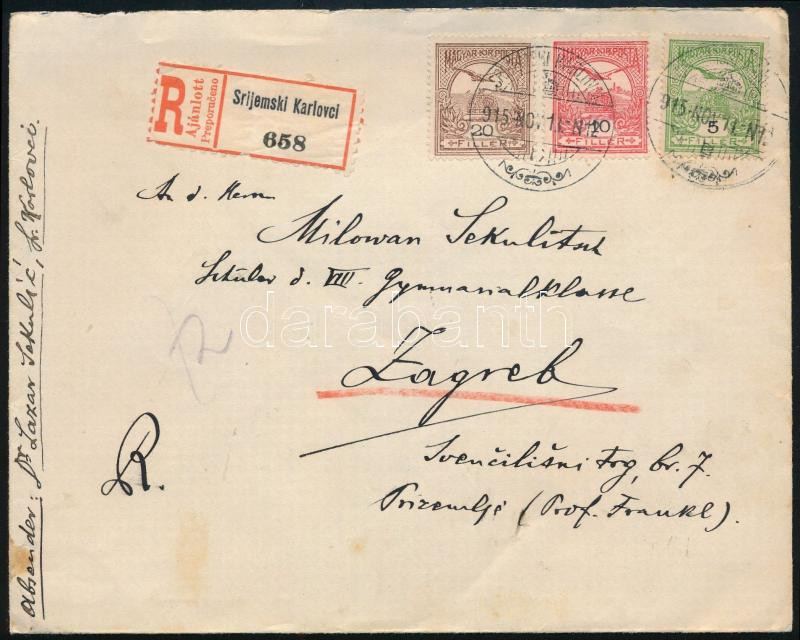 R
Ajánlott
Preporučeno
Srijemski Karlovci
658
MAGYAR·KIR·POSTA
20
FILLER
MAGYAR·KIR·POSTA
10
FILLER
MAGYAR·KIR·POSTA
5
FILLER
915·NOV·11·N12
915·NOV·11·N12
An d. Herrn
Milowan Sekulitsch
Schüler d. VIII. Gymnasialklasse
Zagreb
Svenčilištni trg, br. 7.
Prizemlje (Prof. Frankl).
R.
Absender: Dr Lazar Sekulić, Sr. Karlovci.
darabanth